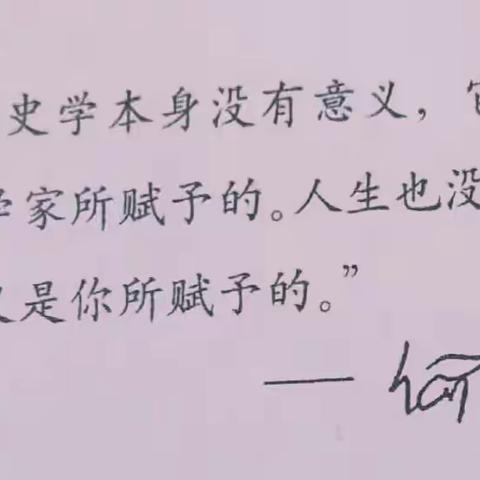 史学本身没有意义，
学家所赋予的。人生也没
义是你所赋予的。”
—— 何